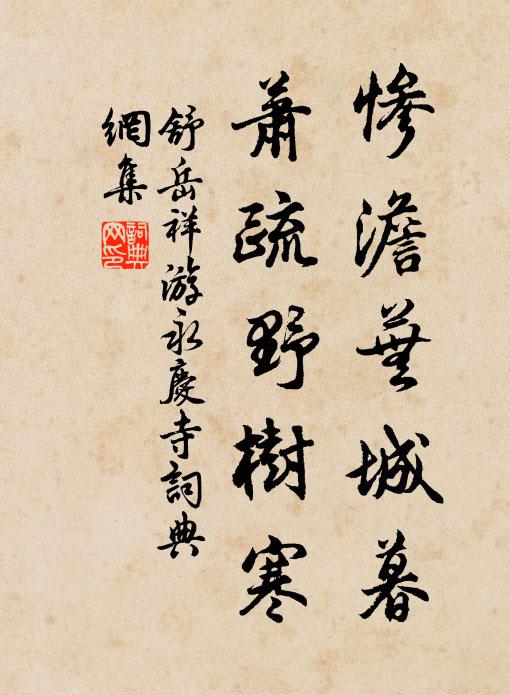 慘澹蕪城暮
蕭疏野樹寒
舒岳祥游永慶寺詞典
網集
詞典
网印